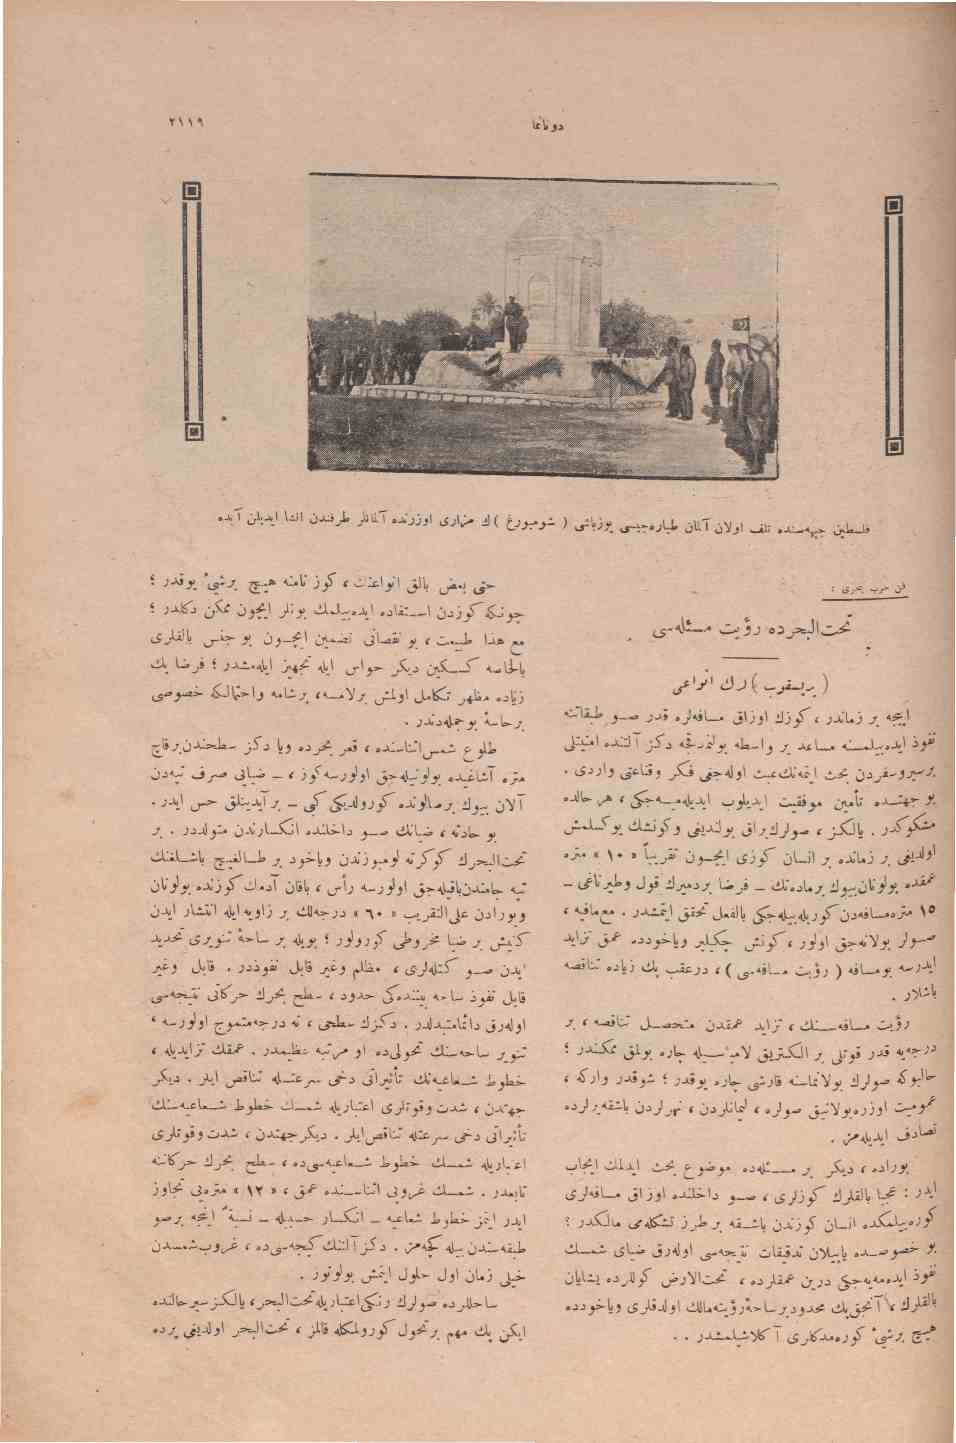 دوناnما
٢١١٩
فلسطین جبهه‌سنده تلف اولان آلمان طیاره‌جیسی یوزباشی ( شومبورغ )ك مزاری اوزرنده آلمانلر طرفندن انشا ایدیلن آبده
فن حرب بحری :
تحت‌البحرده رؤیت مسئله‌سی
( پریسقوپ )لرك انواعی
اپیجه بر زماندر ، كوزك اوزاق مسافه‌لره قدر صو طبقاتنه
نفوذ ایده‌بیلمسنه مساعد بر واسطه بولندیقجه دكز آلتنده امنیتلی
برسیروسفردن بحث ایتمه‌نك عبث اوله‌جغی فكر وقناعتی واردی .
بو جهتده تأمین موفقیت ایدیلوب ایدیله‌مه‌جكی ، هر حالده
مشكوكدر . یالكز ، صولرك براق بولندیغی وكونشك یوكسلمش
اولدیغی بر زمانده بر انسان كوزی ایچون تقریباً « ١٠ » متره
عمقده بولونان بیوك برماده‌نك – فرضا بردمیرك قول وطیرناغی –
١٥ متره مسافه‌دن كوریله‌بیله‌جكی بالفعل تحقق ایتمشدر . مع‌مافیه ،
صولر بولانه‌جق اولور ، كونش چكیلیر ویاخودده عمق تزاید
ایدرسه بومسافه ( رؤیت مسافه‌سی ) ، درعقب پك زیاده تناقصه
باشلار .
رؤیت مسافه‌سنك ، تزاید عمقدن متحصل تناقصه ، بر
درجه‌یه قدر قوتلی بر الكتریق لامبه‌سیله چاره بولمق ممكندر ؛
حالبوكه صولرك بولانماسنه قارشی چاره یوقدر ؛ شوقدر واركه ،
عمومیت اوزره‌بولانیق صولره ، لیمانلردن ، نهرلردن باشقه یرلرده
تصادف ایدیله‌مز .
بوراده ، دیكر بر مسئله‌ده موضوع بحث ایدلمك ایجاب
ایدر : عجبا بالقلرك كوزلری ، صو داخلنده اوزاق مسافه‌لری
كوره‌بیلمكده انسان كوزندن باشقه بر طرز تشكله‌می مالكدر ؟
بو خصوصده یاپیلان تدقیقات نتیجه‌سی اوله‌رق ضیای شمسك
نفوذ ایده‌مه‌یه‌جكی درین عمقلرده ، تحت‌الارض كوللرده یشایان
بالقلرك ، آنجق پك محدود بر ساحهٔ رؤیته‌مالك اولدقلری ویاخودده
هیچ برشیٔ كوره‌مدكلری آكلاشیلمشدر . .
حتی بعض بالق انواعنك ، كوز نامنه هیچ برشیٔ یوقدر ؛
چونكه كوزدن استفاده ایده‌بیلمك بونلر ایچون ممكن دكلدر ؛
مع هذا طبیعت ، بو نقصانی تضمین ایچون بو جنس بالقلری
بالخاصه كسكین دیكر حواس ایله تجهیز ایله‌مشدر ؛ فرضا پك
زیاده مظهر تكامل اولمش برلامسه ، برشامه واحتمالكه خصوصی
برحاسهٔ بوجمله‌دندر .
طلوع شمس اثناسنده ، قعر بحرده ویا دكز سطحندن برقاچ
متره آشاغیده بولونیله‌جق اولورسه كوز ، – ضیایی صرف تپه‌دن
آلان بیوك برصالونده كورولدیكی كبی – بر آیدینلق حس ایدر .
بو حادثه ، ضیانك صو داخلنده انكسارندن متولددر . بر
تحت‌البحرك كوكرته لومبوزندن ویاخود بر طالغیچ باشلغنك
تپه جامندن باقیله‌جق اولورسه رأس ، باقان آدمك كوزنده بولونان
وبورادن علی‌التقریب « ٦٠ » درجه‌لك بر زاویه‌ایله انتشار ایدن
كنیش بر ضیا مخروطی كورولور ؛ بویله بر ساحهٔ تنویری تحدید
ایدن صو كتله‌لری ، مظلم وغیر قابل نفوذدر . قابل وغیر
قابل نفوذ ساحه بیننده‌كی حدود ، سطح بحرك حركاتی نتیجه‌سی
اوله‌رق دائمامتبدلدر . دكزك سطحی ، نه درجه‌متموج اولورسه ،
تنویر ساحه‌سنك تحولی‌ده او مرتبه عظیمدر . عمقك تزایدیله ،
خطوط شعاعیه‌نك تأثیراتی دخی سرعتله تناقص ایلر . دیكر
جهتدن ، شدت وقوتلری اعتباریله شمسك خطوط شعاعیه‌سنك
تأثیراتی دخی سرعتله تناقص‌ایلر . دیكرجهتدن ، شدت وقوتلری
اعتباریله شمسك خطوط شعاعیه‌سی‌ده ، سطح بحرك حركاتنه
تابعدر . شمسك غروبی اثناسنده عمق ، « ١٢ » متره‌یی تجاوز
ایدر ایتمز خطوط شعاعیه – انكسار حسبیله – نسبةً اینجه برصو
طبقه‌سندن بیله كچه‌مز . دكز آلتنك كیجه‌سی‌ده ، غروب‌شمسدن
خیلی زمان اول حلول ایتمش بولونور .
ساحللرده صولرك رنكی‌اعتباریله تحت‌البحر ، یالكز سیر حالنده
ایكن پك مهم بر تحول كورولمكله قالمز ، تحت‌البحر اولدیغی یرده